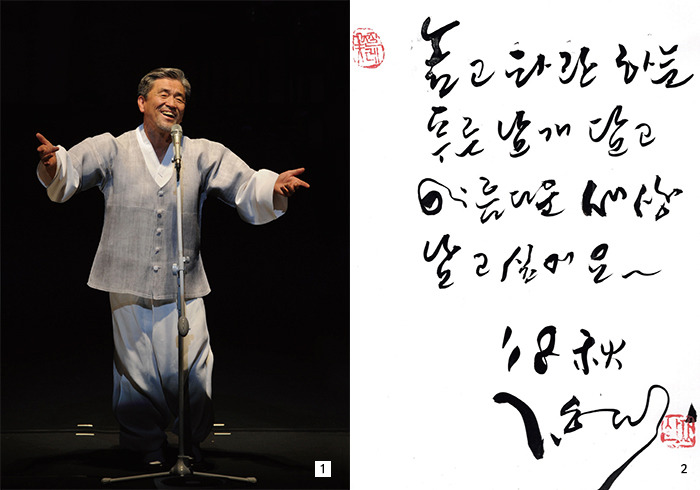 높고 파란 하늘
푸른 날개 달고
아름다운 세상
날고 싶어요~
18 秋
1
2